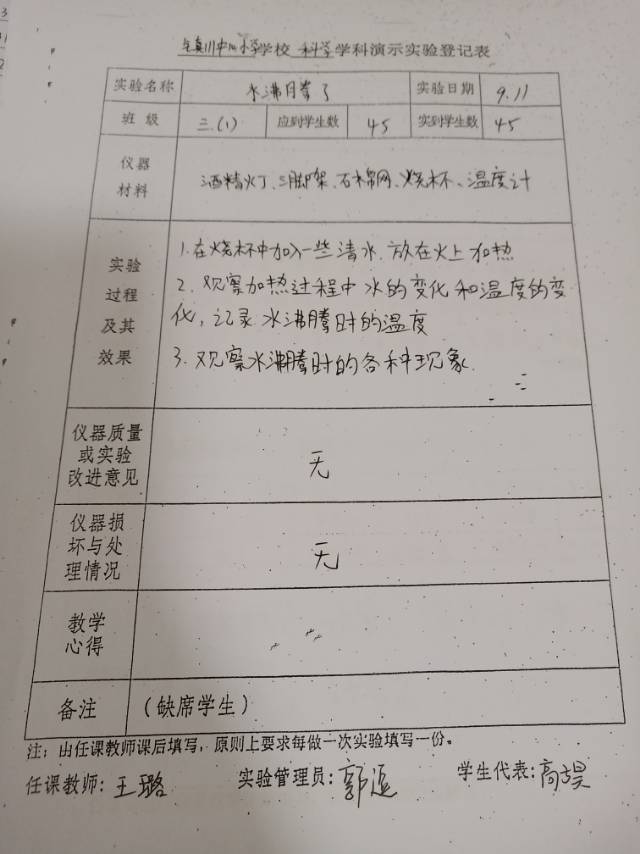 镇川中心小学学校 科学学科演示实验登记表
实验名称 水沸腾了 实验日期 9.11
班 级 三.(1) 应到学生数 45 实到学生数 45
仪器
材料
酒精灯、三脚架、石棉网、烧杯、温度计
实验
过程
及其
效果
1.在烧杯中加入一些清水,放在火上加热
2.观察加热过程中水的变化和温度的变
化,记录水沸腾时的温度
3.观察水沸腾时的各种现象.
仪器质量
或实验
改进意见
无
仪器损
坏与处
理情况
无
教学
心得
备注 (缺席学生)
注:由任课教师课后填写,原则上要求每做一次实验填写一份。
任课教师:王璐 实验管理员:郭 学生代表:高